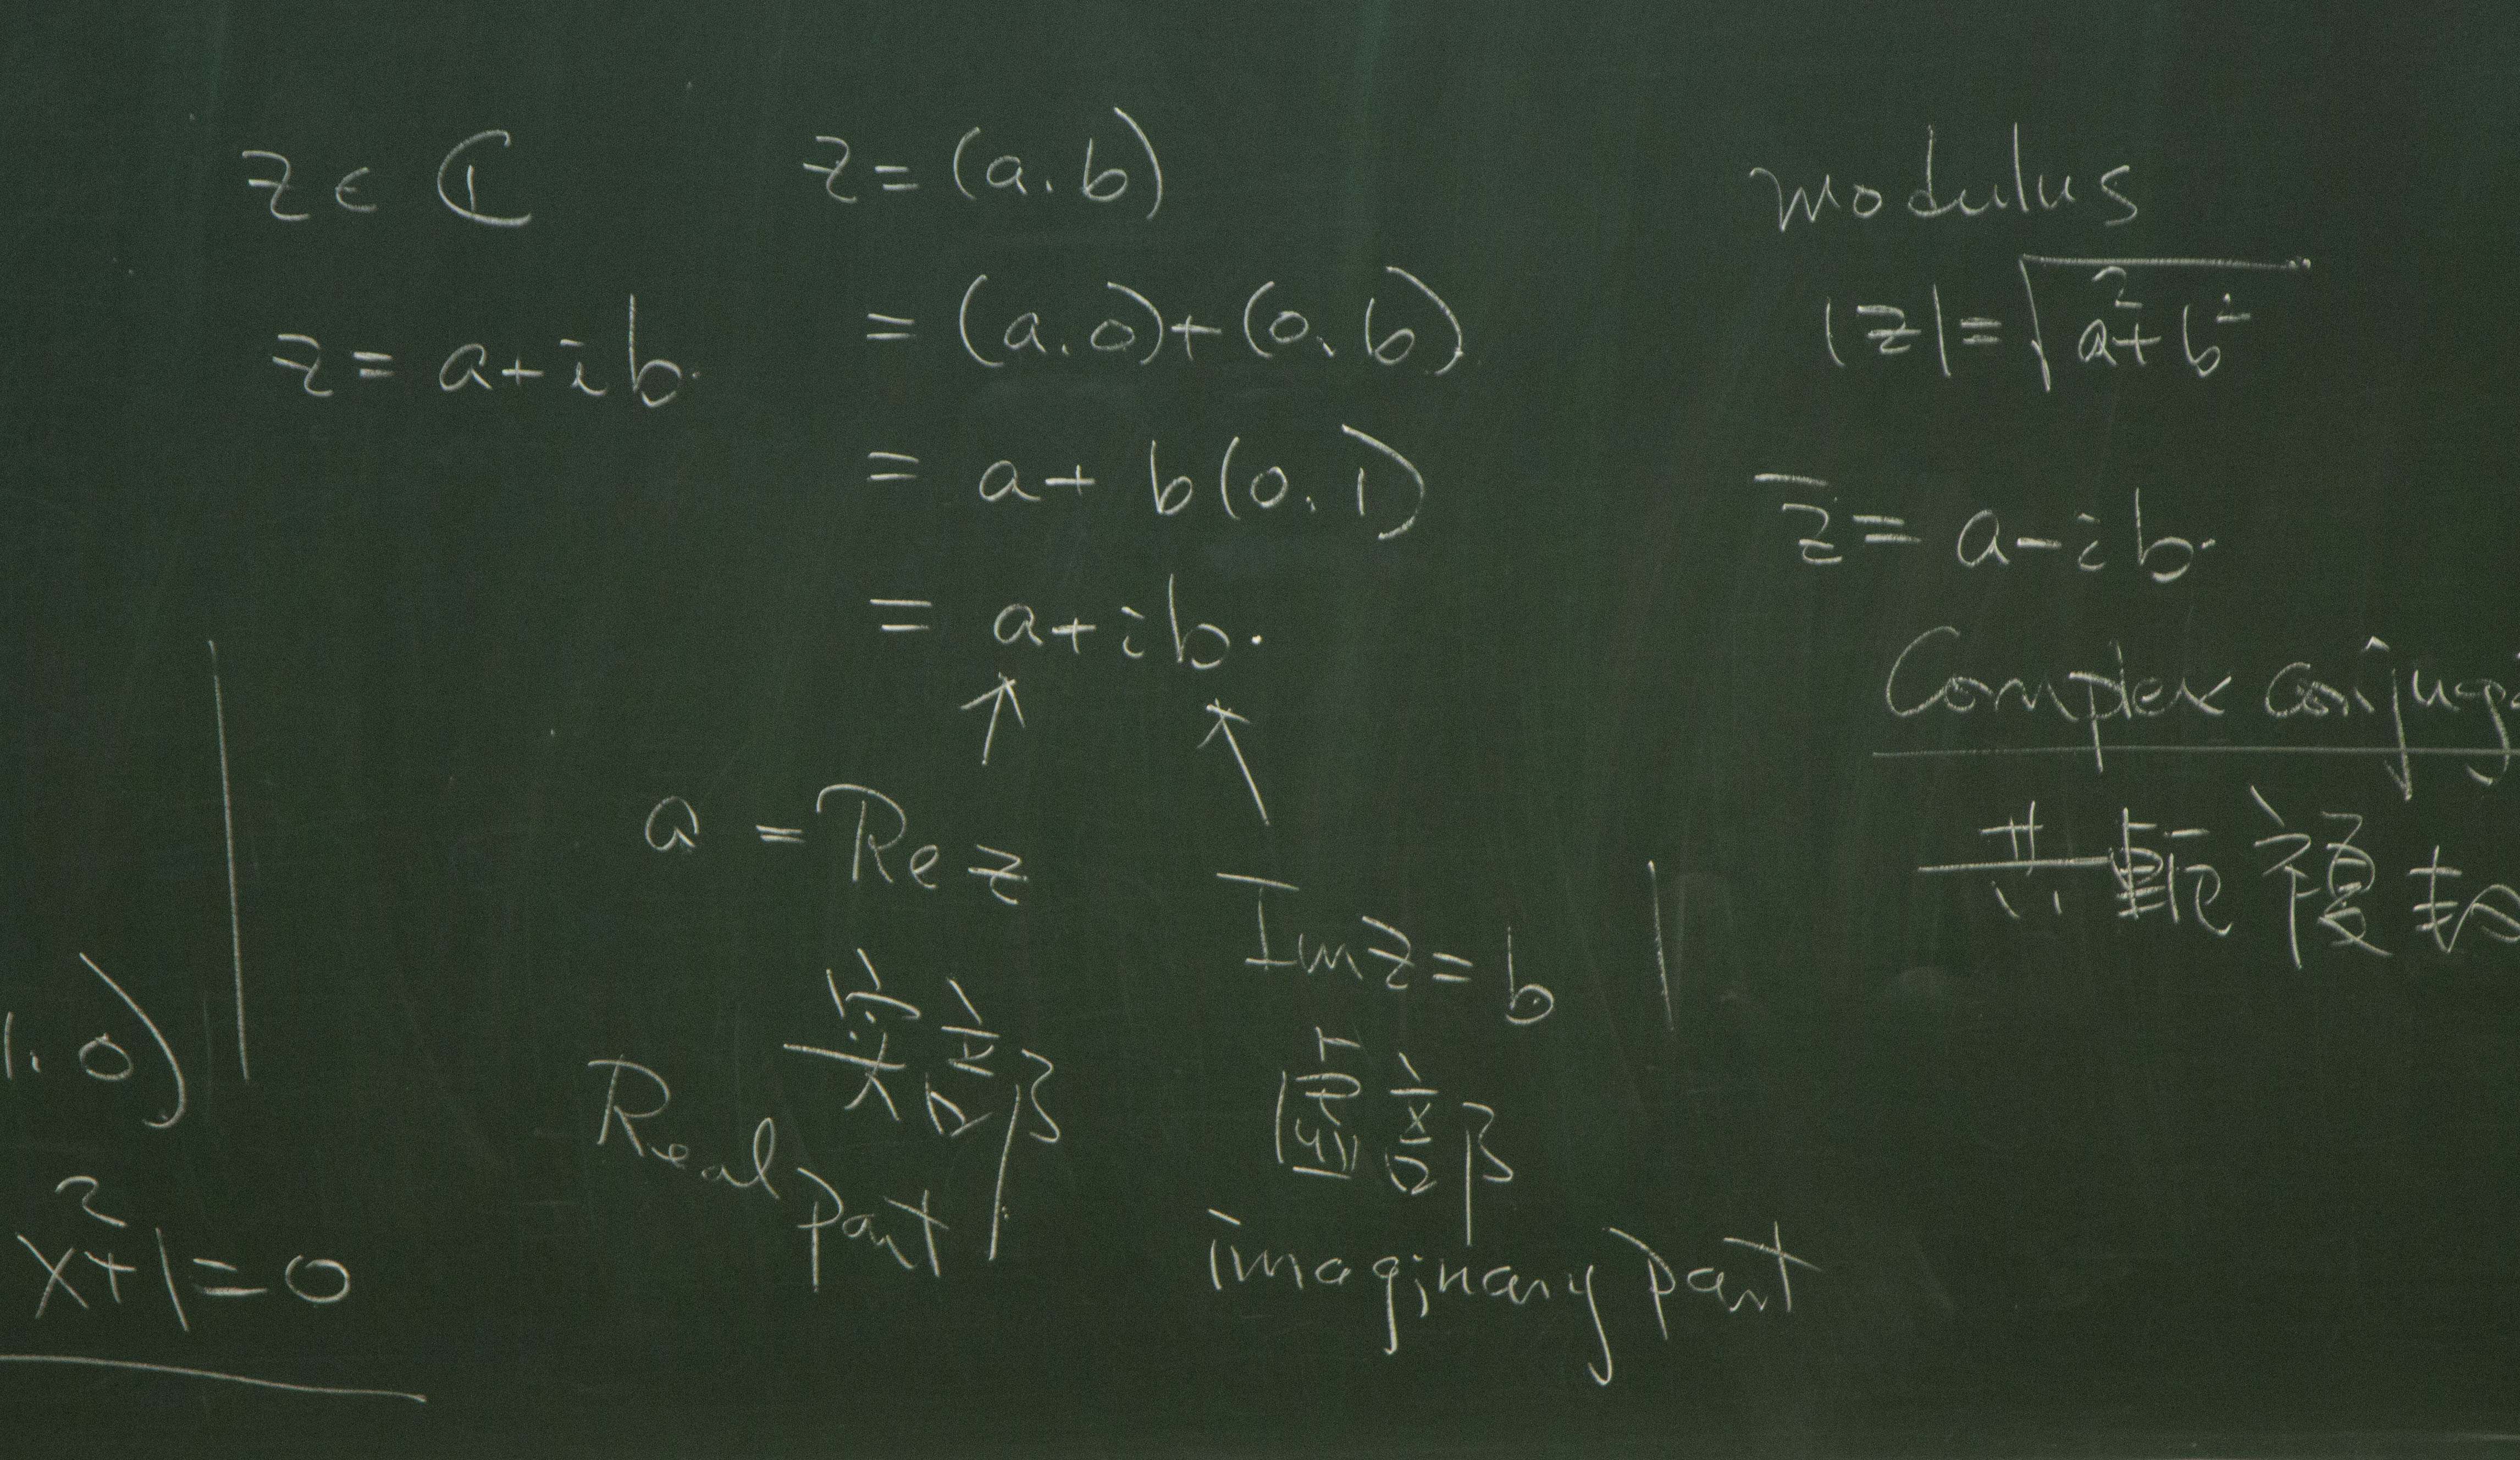 z ∈ ℂ
z = a + i b.
z = (a. b)
= (a. 0) + (0. b)
= a + b (0. 1)
= a + i b.
a = Re z
実部
Real part
Im z = b
虚部
imaginary part
modulus
|z| = √(a² + b²)
z̄ = a - i b.
Complex conjug
共軛複
1. 0)
x² + 1 = 0